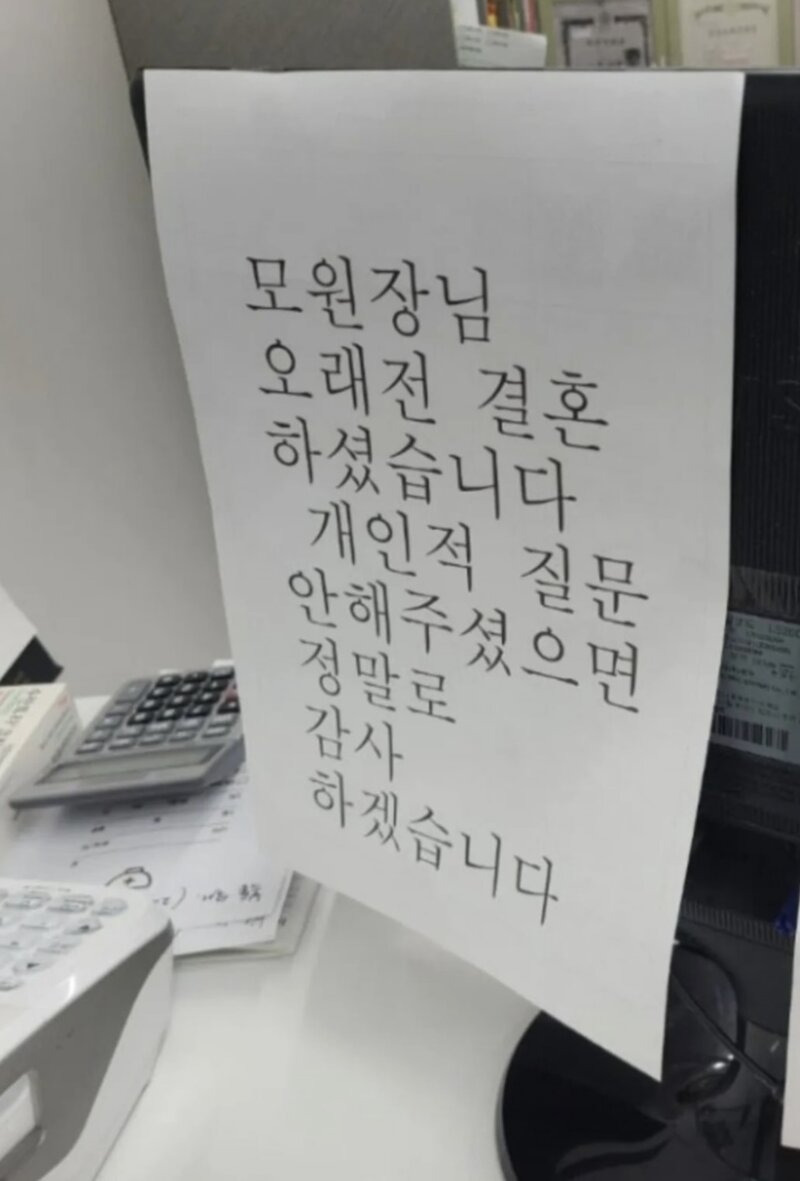 모원장님
오래전 결혼
하셨습니다
개인적 질문
안해주셨으면
정말로
감사
하겠습니다